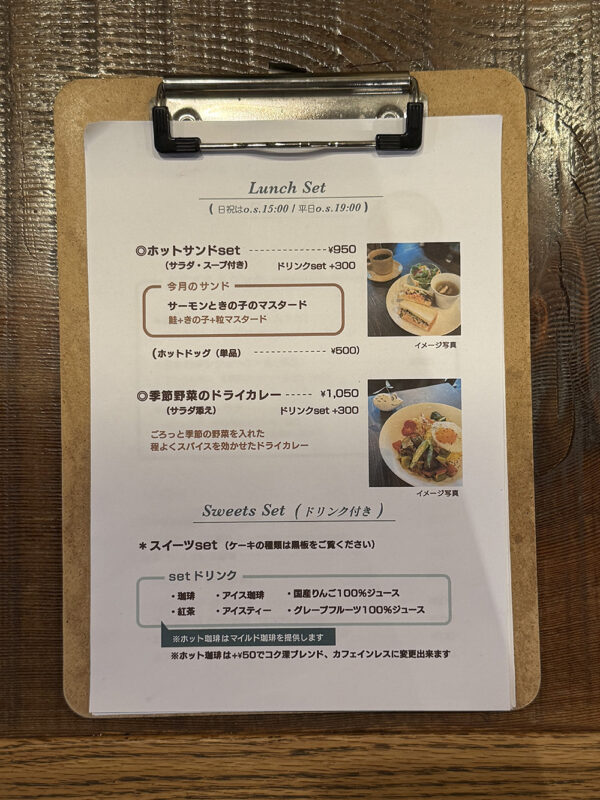 Lunch Set
( 日祝はo.s.15:00 / 平日o.s.19:00 )
◎ホットサンドset ------------- ¥950
(サラダ・スープ付き) ドリンクset +300
今月のサンド
サーモンときの子のマスタード
鮭+きの子+粒マスタード
イメージ写真
(ホットドッグ (単品) ------------- ¥500)
◎季節野菜のドライカレー ----- ¥1,050
(サラダ添え) ドリンクset +300
ごろっと季節の野菜を入れた
程よくスパイスを効かせたドライカレー
イメージ写真
Sweets Set (ドリンク付き)
＊スイーツset (ケーキの種類は黒板をご覧ください)
setドリンク
・珈琲 ・アイス珈琲 ・国産りんご100%ジュース
・紅茶 ・アイスティー ・グレープフルーツ100%ジュース
※ホット珈琲はマイルド珈琲を提供します
※ホット珈琲は+¥50でコク深ブレンド、カフェインレスに変更出来ます